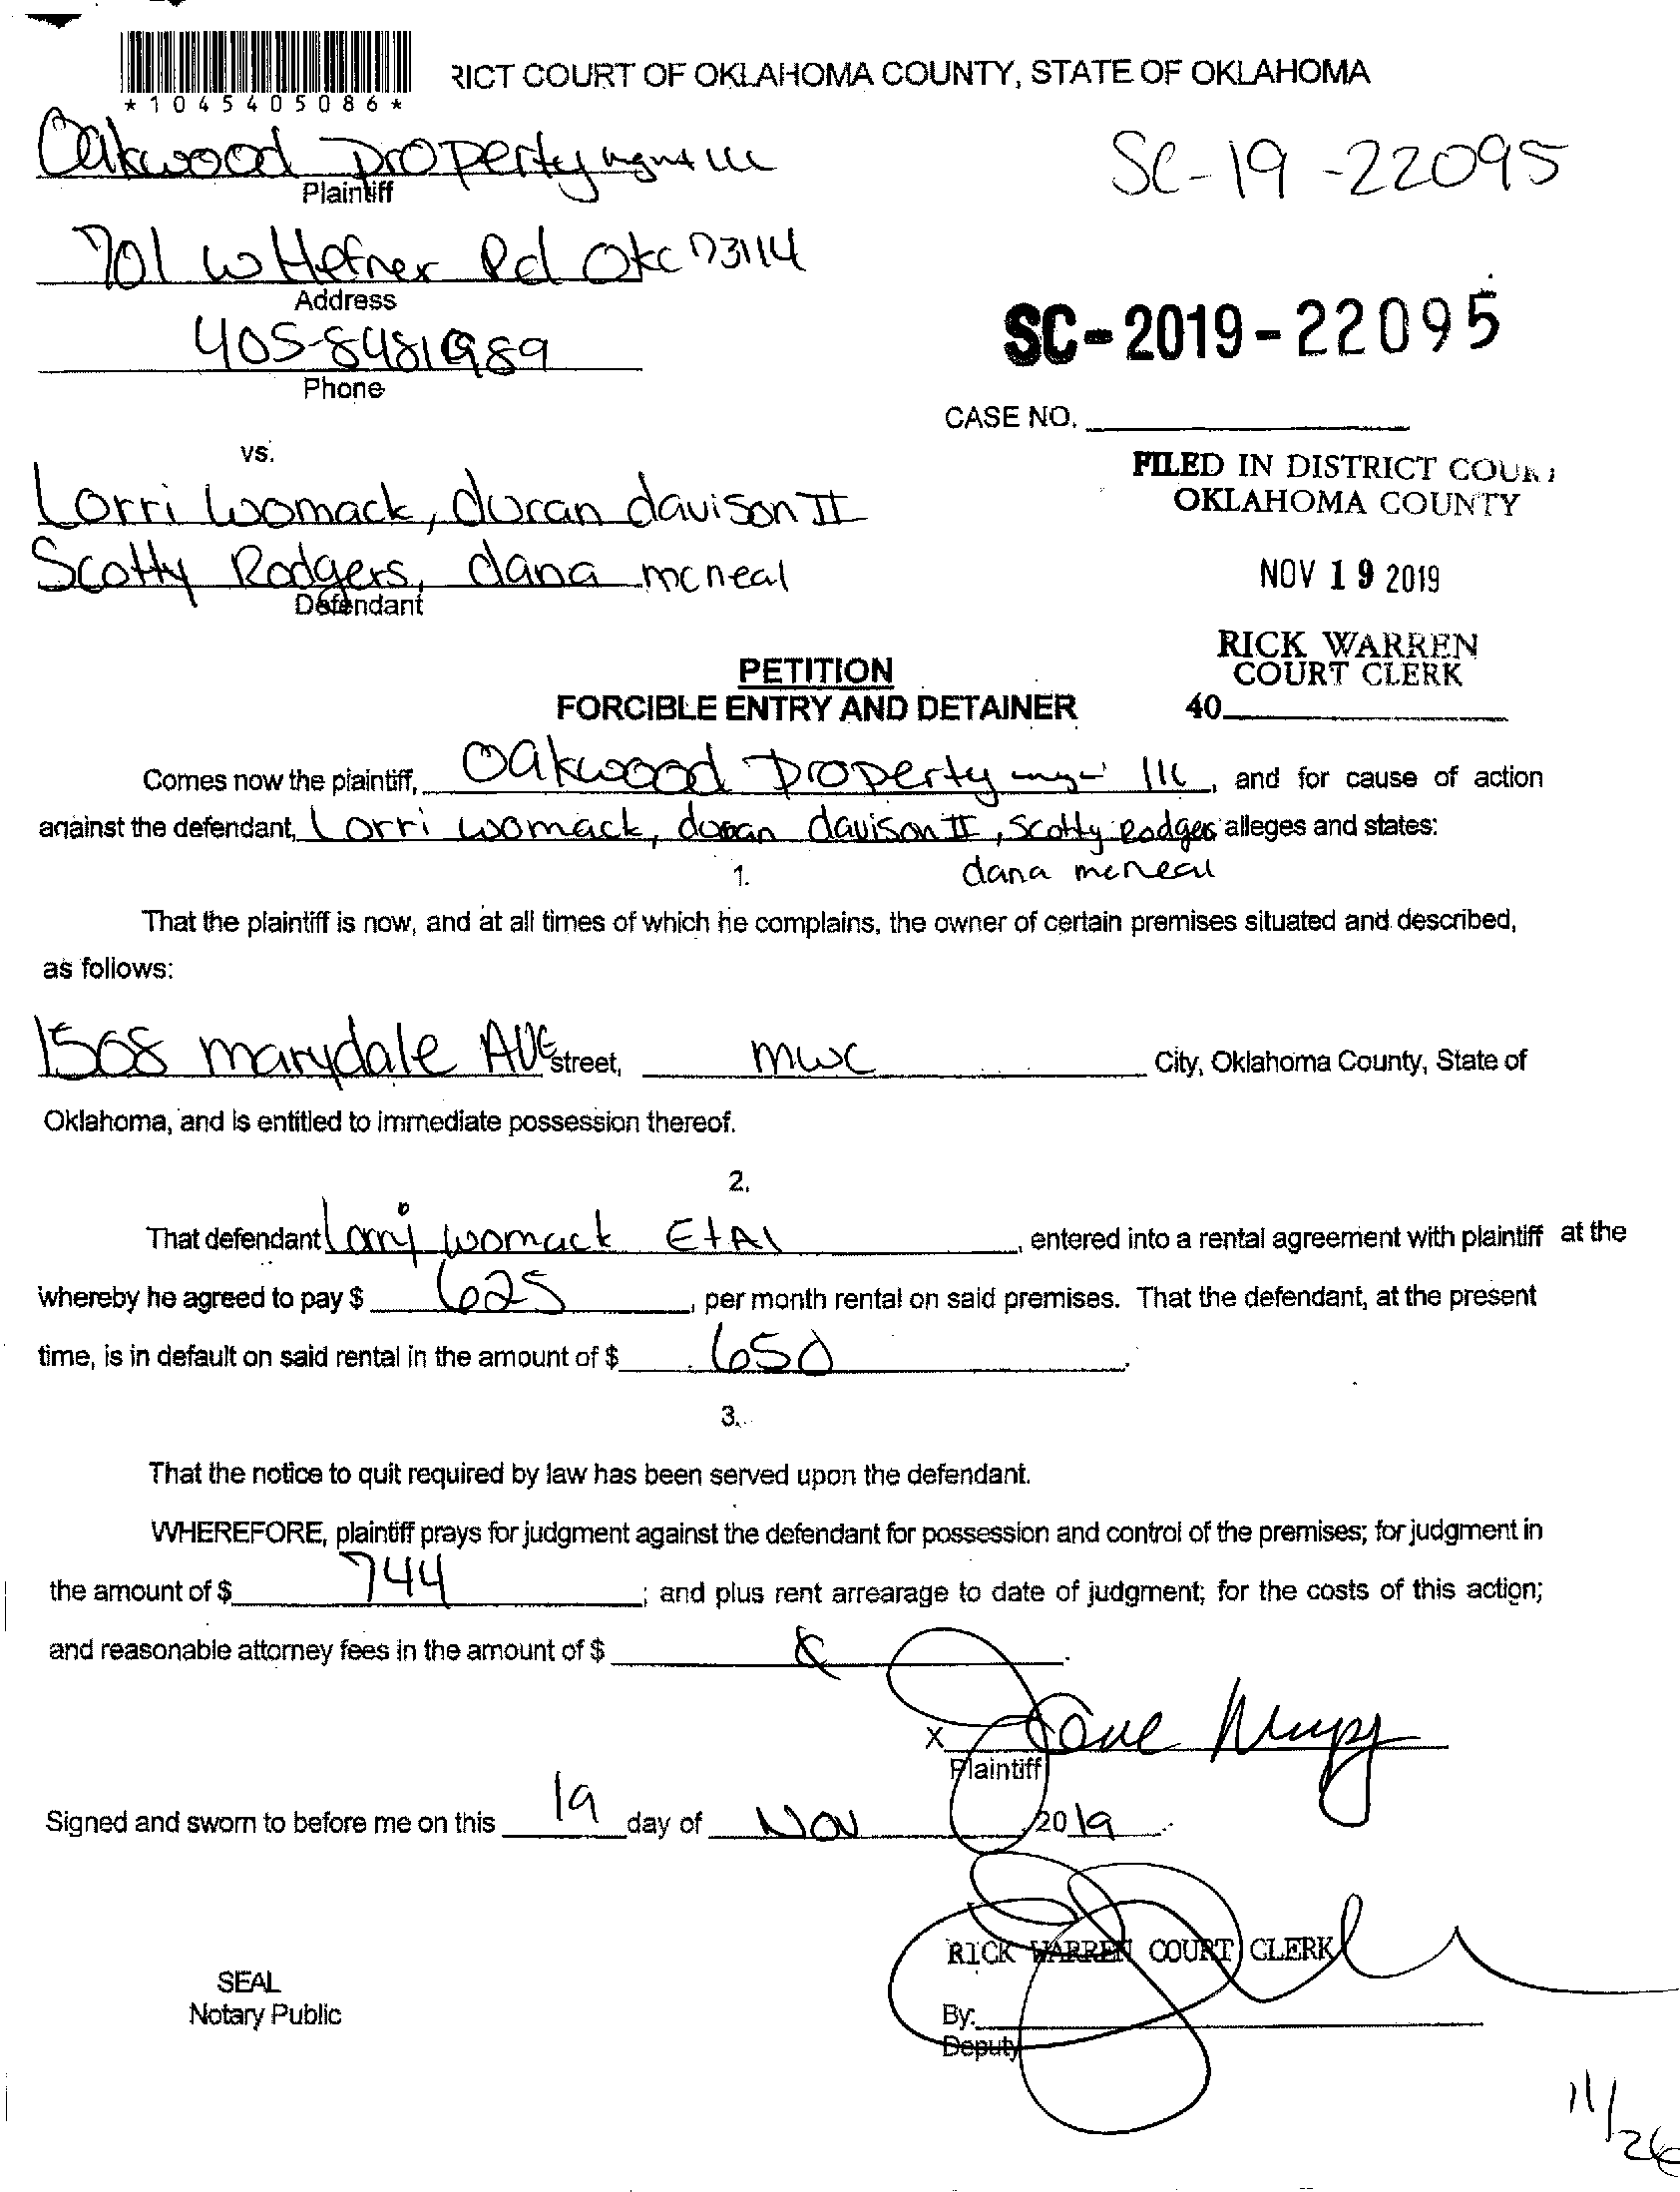 *1045405086*
RICT COURT OF OKLAHOMA COUNTY, STATE OF OKLAHOMA
Oakwood Property mgmt llc
Plaintiff
SC-19-22095
701 W Hefner Rd Okc 73114
Address
405-8481989
Phone
SC-2019-22095
CASE NO.
vs.
Lorri Womack, duran davison II
Scotty Rodgers, dana mcneal
Defendant
FILED IN DISTRICT COURT
OKLAHOMA COUNTY
NOV 19 2019
RICK WARREN
COURT CLERK
40
PETITION
FORCIBLE ENTRY AND DETAINER
Comes now the plaintiff, Oakwood Property llc, and for cause of action
against the defendant, Lorri womack, duran davison II, Scotty Rodgers alleges and states:
dana mcneal
1.
That the plaintiff is now, and at all times of which he complains, the owner of certain premises situated and described,
as follows:
1568 marydale AVE street, mwc City, Oklahoma County, State of
Oklahoma, and is entitled to immediate possession thereof.
2.
That defendant Lorri womack EtAl, entered into a rental agreement with plaintiff at the
whereby he agreed to pay $ 625, per month rental on said premises. That the defendant, at the present
time, is in default on said rental in the amount of $ 650.
3.
That the notice to quit required by law has been served upon the defendant.
WHEREFORE, plaintiff prays for judgment against the defendant for possession and control of the premises; for judgment in
the amount of $ 744; and plus rent arrearage to date of judgment; for the costs of this action;
and reasonable attorney fees in the amount of $
X
Plaintiff
Signed and sworn to before me on this 19 day of Nov, 2019.
RICK WARREN COURT CLERK
SEAL
Notary Public
By:
Deputy
11/26